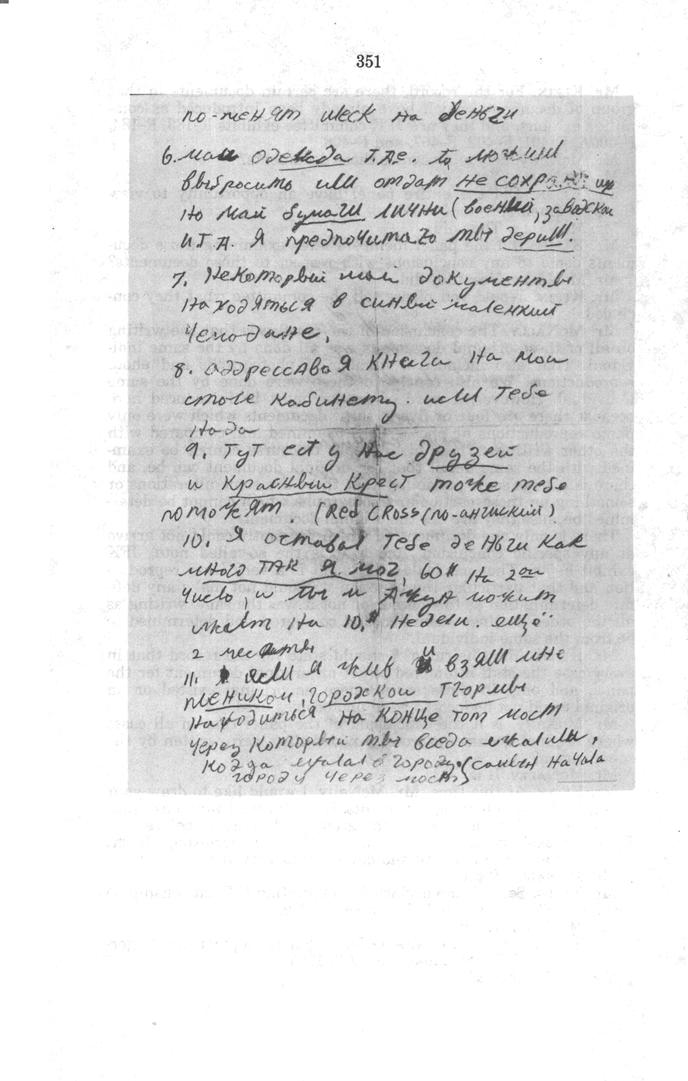 351
по-менят шеск на деньги
6. маи одежда т.д.е. ты можишь
выбросить или отдат не сохран
но май бумаги лични (военый, заводской
и т.д. я предпочитаю ты дериш.
7. Некоторый мои документы
находяться в синый маленкий
чемодане.
8. аддрессавая книга на мои
столе кабинету. исли тебе
нада
9. тут ест у нас друзей
и Красный Крест тоже тебе
поможят. (Red CROSS (по-англиский)
10. я оставал тебе деньги как
много так я мог, 60 на 2ой
число, и ты и джун можит
на 10. недели. ещё
2 месяты
11. если я жив и взяли мне
плеником, городской тюрмы
находиться на конце тот мост
через который ты всегда ехали,
когда ехала в городу. (самый начала
городу через мост)